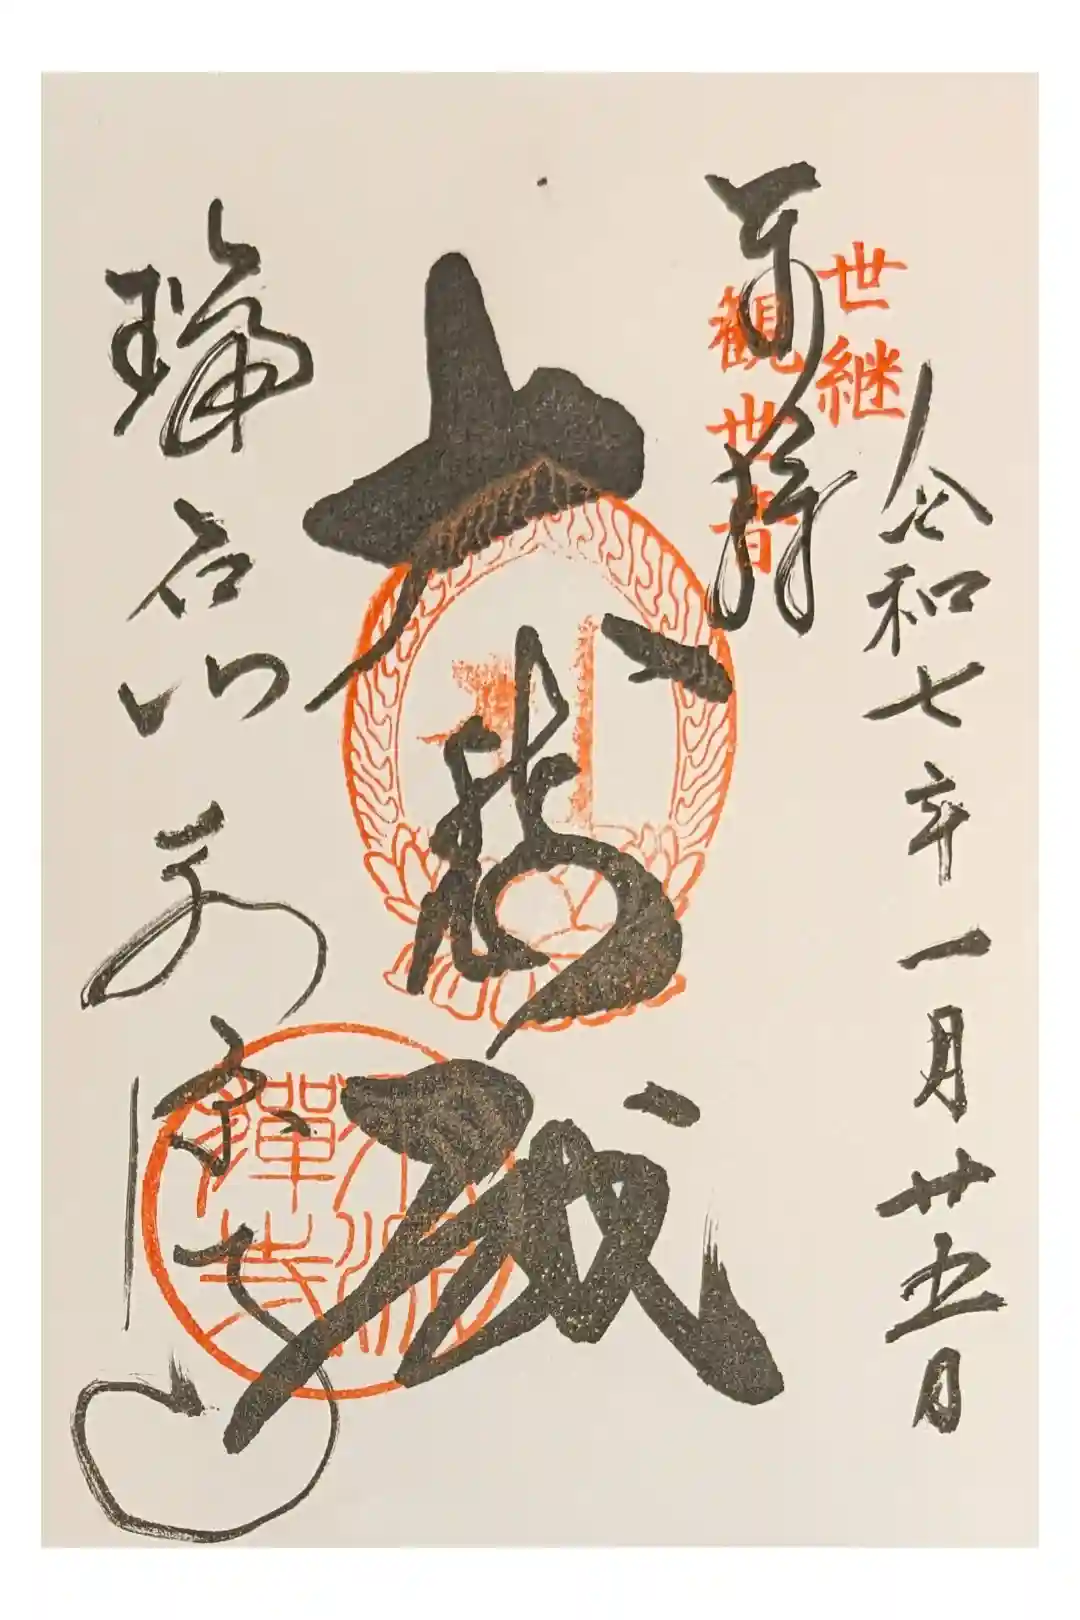 令和七年一月廿五日
世継
観世音
奉拝
瑞石山
永源寺
禪寺